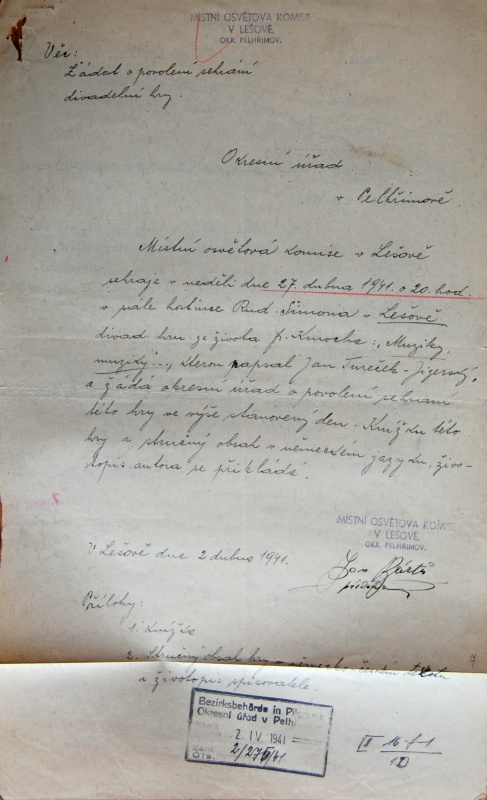 MÍSTNÍ OSVĚTOVA KOMISE
V LEŠOVĚ,
OKR. PELHŘIMOV.
Věc:
Žádost o povolení sehrání
divadelní hry.
Okresní úřad
v Pelhřimově.
Místní osvětová komise v Lešově
sehraje v neděli dne 27. dubna 1941 o 20. hod.
v sále hostince Rud. Šimona v Lešově
divad. hru ze života fr. Kmocha: „Muziky,
muziky...", kterou napsal Jan Tureček-Jizerský,
a žádá okresní úřad o povolení sehrání
této hry ve výše stanovený den. Knížku této
hry a stručný obsah v německém jazyku, živo-
topis autora, se přikládá.
MÍSTNÍ OSVĚTOVA KOMISE
V LEŠOVĚ,
OKR. PELHŘIMOV.
V Lešově dne 2. dubna 1941.
Jan Bártů
předseda
Přílohy:
1. Knížka
2. Stručný obsah hry
a životopis spisovatele.
Bezirksbehörde in
Okresní úřad v Pelhř
2. IV. 1941